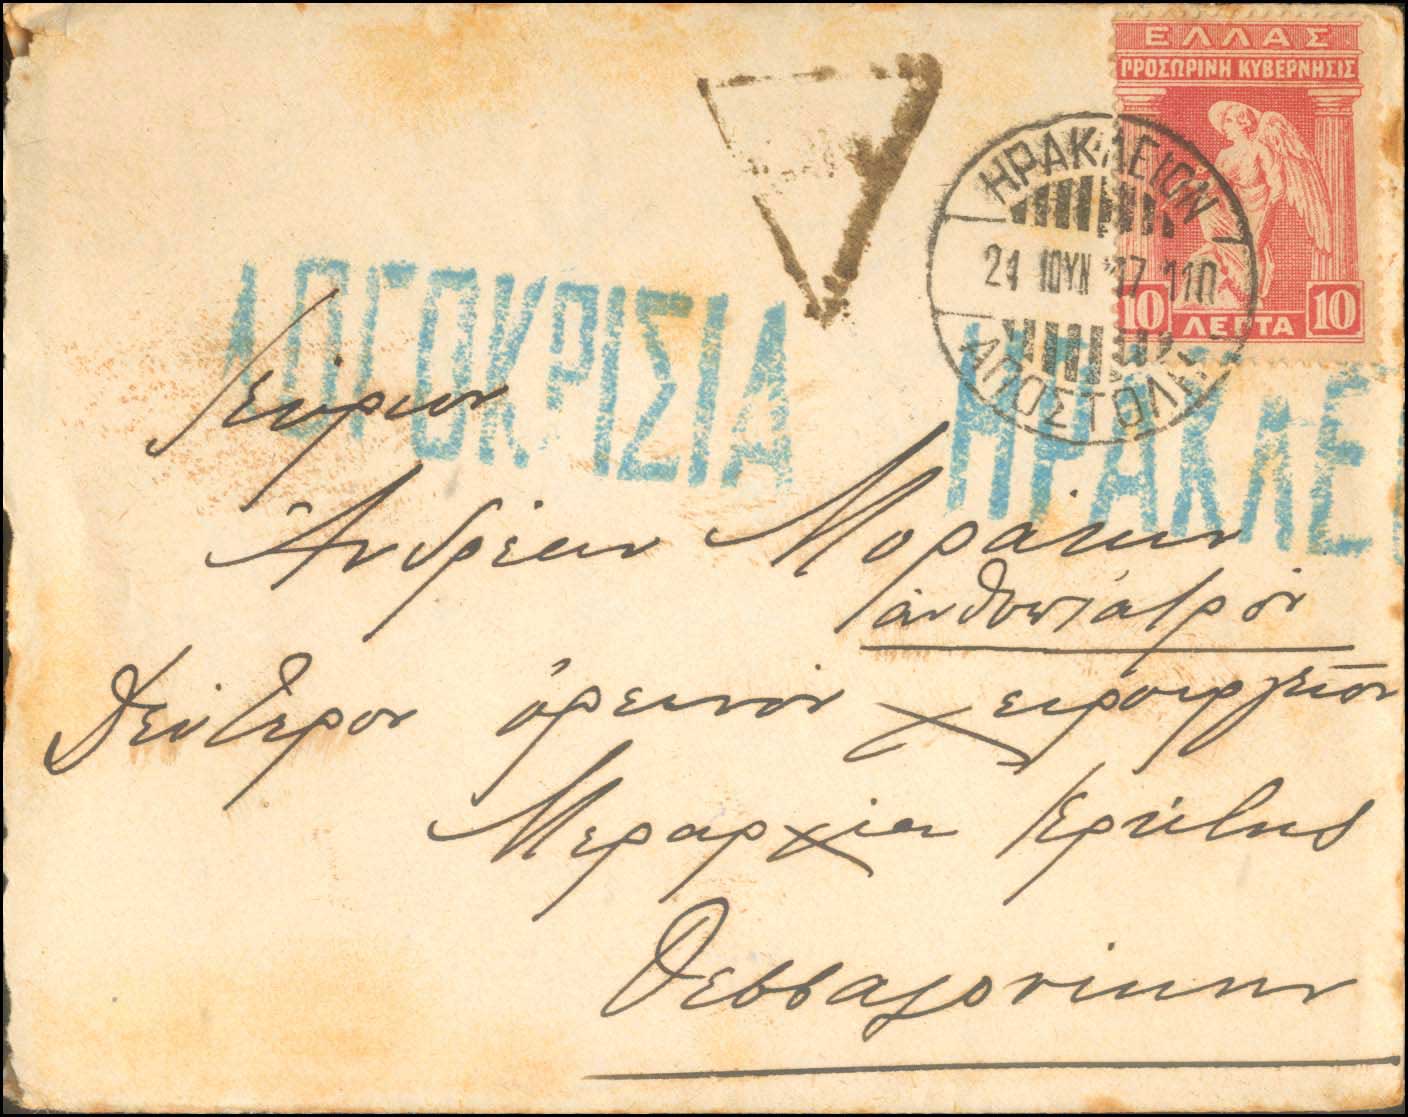 ΕΛΛΑΣ
ΠΡΟΣΩΡΙΝΗ ΚΥΒΕΡΝΗΣΙΣ
10 ΛΕΠΤΑ 10
ΗΡΑΚΛΕΙΟΝ
21 ΙΟΥΝ 17 11Π
ΑΠΟΣΤΟΛΗ
ΛΟΓΟΚΡΙΣΙΑ ΗΡΑΚΛΕ
Κύριον
Ἀνδρέαν
ἀνθυπίατρόν
Δεύτερον ὀρεινόν χειρουργεῖον
Μεραρχία Κρήτης
Θεσσαλονίκην